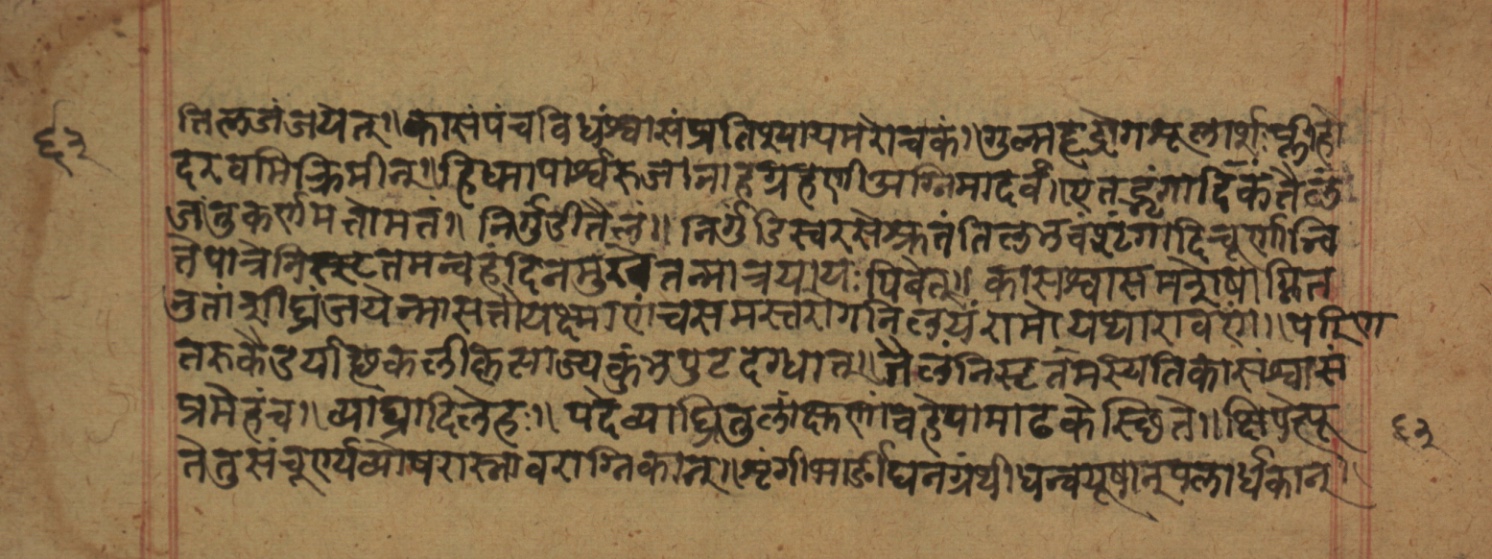 ६३
तिलजं जयेत्॥ कासं पंचविधं श्वासं प्रतिश्यायमरोचकं॥ गुल्महृद्रोगशूलार्शः प्लीहो
दरवमिक्रिमीन्॥ हिध्मापार्श्वरुजानाहग्रहणीअग्निमार्दवं॥ एतद्भृंगादिकं तैलं
जंतुकर्णमत्तोमतं॥ निर्गुंडीतैलं॥ निर्गुंडिस्वरसेकृतं तिलभवं शृंगादिचूर्णान्वि
तं पात्रे निसृतमन्वहं दिनमुखे तन्मात्रया यः पिबेत्॥ कासश्वास
नुतां शीघ्रं जयेन्मासतो यक्ष्माणं च समस्तरोगनिलयं रामो यथा रावणं॥
तरुकैडर्या कलीकृत्साज्यकुंभपुटदग्धात्॥ तैलं निसृतमस्यति कासं श्वासं
प्रमेहं च॥ व्याघ्रादिलेहः॥ पदेव्याघ्रितुलां क्षुण्णां वहेपामाढके स्थिते॥ क्षिपेत्पू
ते तु संचूर्ण्य व्योषरास्नावराग्निकान्॥ शृंगीभार्ङीघनग्रंथीधन्वयूषान्पलार्धकान्॥
६३